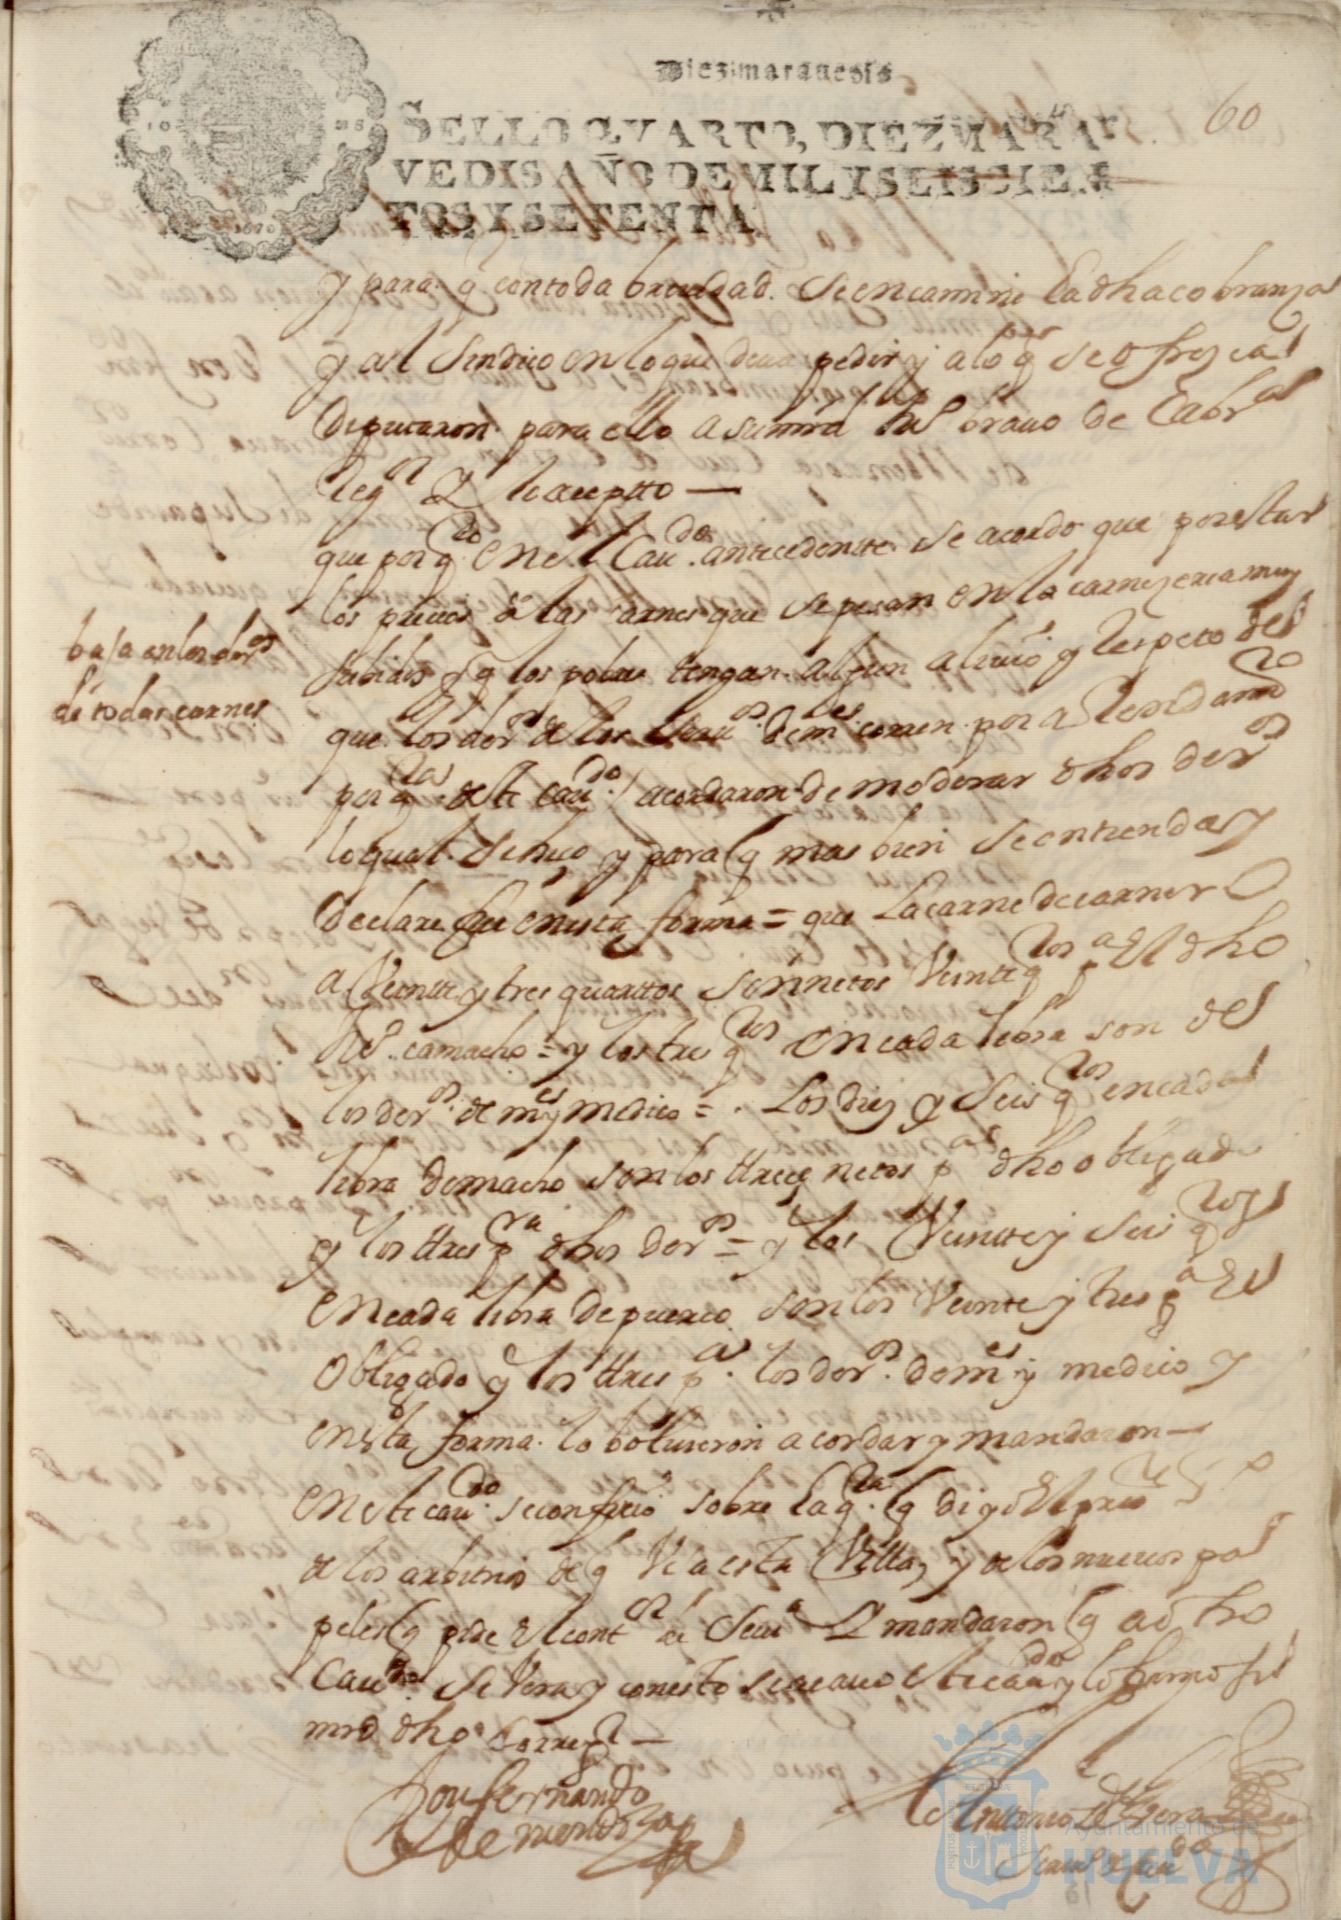 Diez maravedis
60
SELLO QVARTO, DIEZ MARA
VEDIS AÑO DE MIL Y SEISCIEN
TOS Y SETENTA
1670
y para q con toda breuedad se encamine la dha cobranza
y al Sindico en lo que deua pedir y a lo q se ofrezca
diputaron para ello a su mrd brauo de Cabral
Reg.or Y lo acepto —
que por q.to en el Cau.do antecedente se acordo que por estar
los precios de las carnes que se pesan en la carneceria muy
subidos y q los pobres tengan algun aliuio y Respeto del
baja en los der.os
de todas carnes
que los der.os de los comen por
por q.tas este cau.do / acordaron de moderar dhos der.os
lo qual se hizo y para q mas bien se entienda y
declare fue en esta forma = que La carne de carnero
a Veinte y tres quarttos son netos Veinte q.tos p.a El dho
camacho = y los tres q.tos en cada libra son del
los der.os de m.es y medio = Los diez y Seis q.tos en cada
libra de macho son los trece netos p.a dho obligado
y los tres p.ra dhos der.os = y los Veinte y seis q.tos
en cada libra de puerco son los Veinte y tres p.a El
obligado y los tres p.a los der.os de m.es y medio y
en esta forma lo boluieron a cordar y mandaron —
en este cau.do se confirio sobre la q.ta q
de los arbitrios de q Vsa esta Villa y de los nueuos pa
peles q pide el cont.or de Seui.a Y mandaron q a dho
Cau.do se Vera y con esto se acauo este cau.do y lo firmo su
mrd dho Correg.or —
Don fernando
de mendoza
Antonio de
Ayuntamiento de
HUELVA